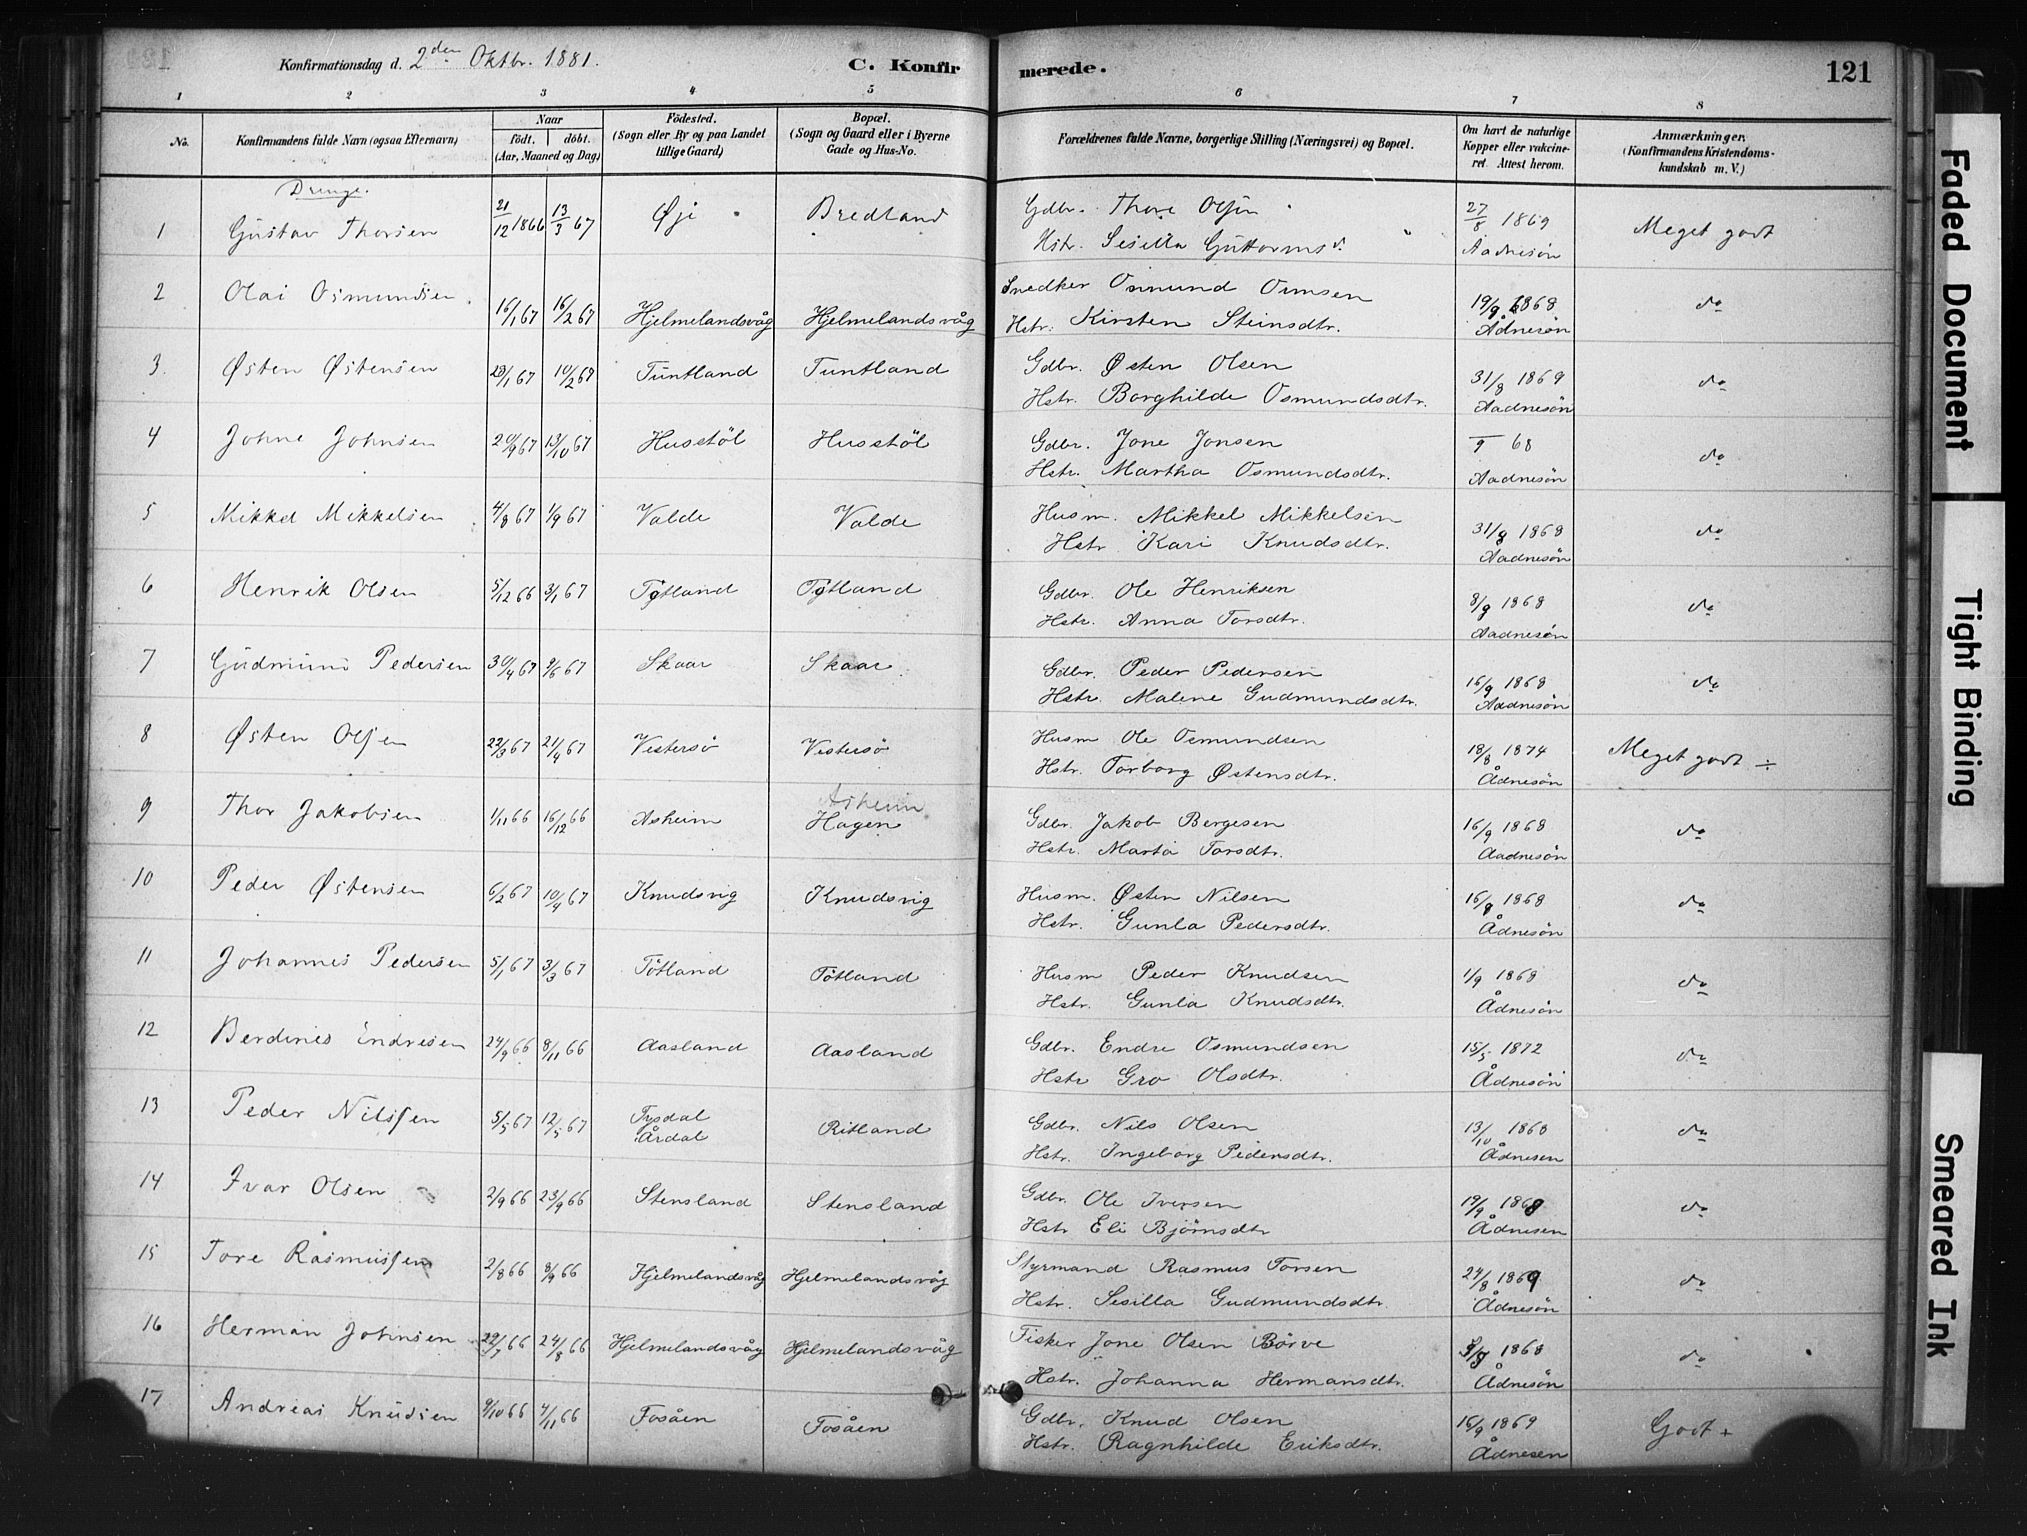 Konfirmationsdag d. 2den Oktbr. 1881. C. Konfirmerede. 121
1 2 3 4 5 6 7 8
No. Konfirmandens fulde Navn (ogsaa Efternavn) Naar födt. döbt. (Aar, Maaned og Dag) Födested. (Sogn eller By og paa Landet tillige Gaard) Bopæl. (Sogn og Gaard eller i Byerne Gade og Hus-No. Forældrenes fulde Navne, borgerlige Stilling (Næringsvei) og Bopæl. Om havt de naturlige Kopper eller vakcineret Attest herom. Anmærkninger. (Konfirmandens Kristendomskundskab m. V.)
Drenge.
1 Gustav Thorsen 21/12 1866 13/3 67 Øje Bredland Gdbr. Thore Olsen 27/8 1869 Meget godt
Hstr. Sesilla Guttormsd. Aadnesön
2 Olai Osmundsen 16/1 67 16/2 67 Hjelmelandsvåg Hjelmelandsvåg Snedker Osmund Ormsen 19/9 1868 do
Hstr. Kirsten Steinsdtr. Ådnesön
3 Østen Østensen 28/1 67 10/2 67 Tuntland Tuntland Gdbr. Østen Olsen 31/8 1869 do
Hstr. Borghilde Osmundsdtr. Aadnesön
4 Johne Johnsen 20/9 67 13/10 67 Husstöl Husstöl Gdbr. Jone Jonsen 9 68 do
Hstr. Martha Osmundsdtr. Aadnesön
5 Mikkel Mikkelsen 4/8 67 1/9 67 Valde Valde Husm. Mikkel Mikkelsen 31/8 1868 do
Hstr Kari Knudsdtr. Aadnesön
6 Henrik Olsen 5/12 66 3/1 67 Tøtland Tøtland Gdbr. Ole Henriksen 8/9 1868 do
Hstr. Anna Torsdtr. Aadnesön
7 Gudmund Pedersen 30/4 67 9/6 67 Skaar Skaar Gdbr. Peder Pedersen 16/9 1868 do
Hstr. Malene Gudmundsdtr. Aadnesön
8 Østen Olsen 22/3 67 21/4 67 Vestersö Vestersö Husm Ole Osmundsen 18/8 1874 Meget godt ÷
Hstr. Torborg Østensdtr. Ådnesön
9 Thor Jakobsen 1/11 66 16/12 66 Asheim Asheim Hagen Gdbr. Jakob Bergesen 16/9 1868 do
Hstr. Marta Torsdtr. Aadnesön
10 Peder Østensen 6/2 67 10/4 67 Knudsvig Knudsvig Husm. Østen Nilsen 16/9 1868 do
Hstr. Gunla Pedersdtr. Ådnesön
11 Johannes Pedersen 5/1 67 3/3 67 Tötland Tötland Husm Peder Knudsen 1/9 1868 do
Hstr. Gunla Knudsdtr. Ådnesön
12 Berdines Endresen 24/9 66 8/11 66 Aasland Aasland Gdbr. Endre Osmundsen 15/5 1872 do
Hstr Gro Olsdtr. Ådnesön
13 Peder Nilssen 5/5 67 12/5 67 Tysdal Årdal Ritland Gdbr. Nils Olsen 13/10 1868 do
Hstr. Ingeborg Pedersdtr. Ådnesen
14 Ivar Olsen 2/9 66 23/9 66 Stensland Stensland Gdbr. Ole Iversen 19/9 1868 do
Hstr Eli Björnsdtr Ådnesen
15 Tore Rasmussen 2/8 66 8/9 66 Hjelmelandsvåg Hjelmelandsvåg Styrmand Rasmus Torsen 24/8 1869 do
Hstr. Sesilla Gudmundsdtr. Ådnesön
16 Herman Johnsen 22/7 66 24/8 66 Hjelmelandsvåg Hjelmelandsvåg Fisker Jone Olsen Börve 1868 do
Hstr. Johanna Hermansdtr. Ådnesön
17 Andreas Knudsen 9/10 66 4/11 66 Fosåen Fosåen Gdbr. Knud Olsen 16/9 1869 Godt +
Hstr. Ragnhilde Eriksdtr. Ådnesen
Faded Document
Tight Binding
Smeared Ink